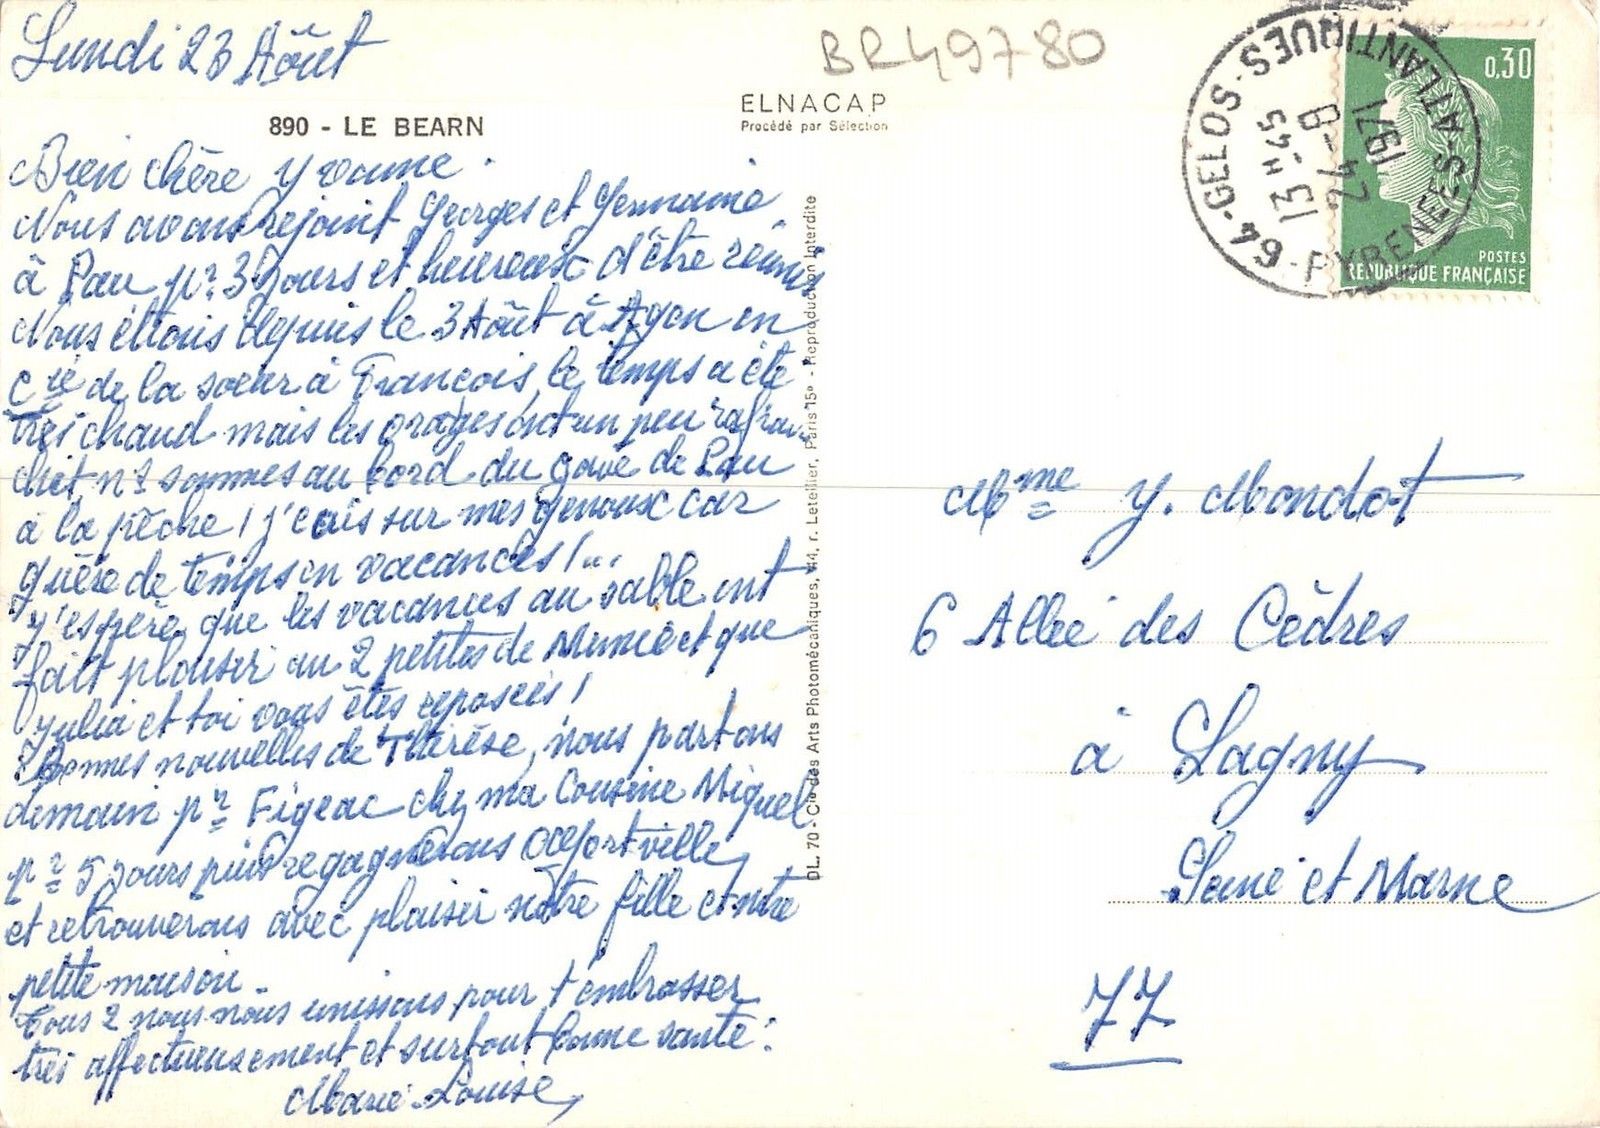 Lundi 23 Aôut
BR49780
ELNACAP
Procédé par Sélection
890 - LE BEARN
Bien chère Yvonne.
Nous avons rejoint Georges et Germaine
à Pau pr 3 jours et heureux d'être réunis
Nous étions depuis le 3 Aôut à Agon en
cie de la soeur à François, le temps a été
très chaud mais les orages ont un peu rafraî
chit, ns sommes au bord du gave de Pau
à la pêche ! j'écris sur mes genoux car
guère de temps en vacances !...
J'espère que les vacances au sable ont
fait plaisir au 2 petites de et que
Julia et toi vous êtes reposées !
Bonnes nouvelles de Thérèse, nous partons
demain pr Figeac chez ma Cousine Miquel
pr 5 jours puis regagnerons Alfortville,
et retrouverons avec plaisir nôtre fille et ntre
petite maison.
Tous 2 nous nous unissons pour t'embrasser
très affectueusement et surtout bonne santé.
Marie-Louise
DL. 70 - Cie des Arts Photomécaniques, 44, r. Letellier, Paris 15e - Reproduction Interdite
64-GELOS-PYRENEES-ATLANTIQUES
13H45
24-8
1971
0,30
POSTES
REPUBLIQUE FRANÇAISE
Mme Y. Mondot
6 Allée des Cèdres
à Lagny
Seine et Marne
77